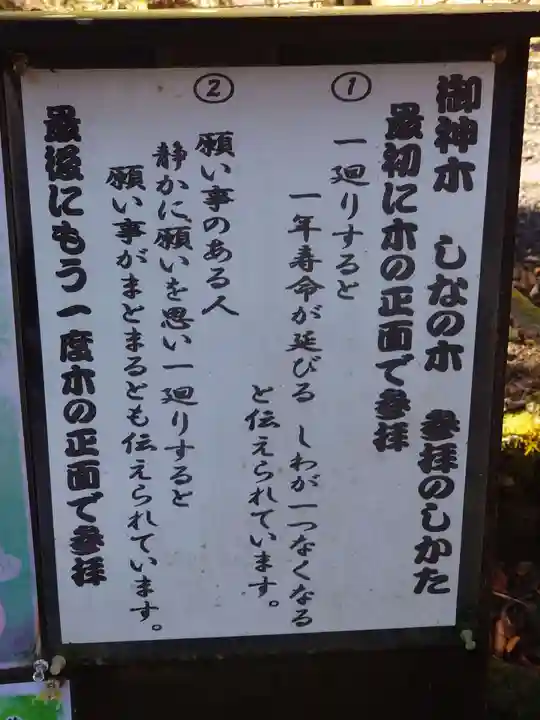 御神木 しなの木 参拝のしかた
最初に木の正面で参拝
①
一廻りすると
一年寿命が延びる しわが一つなくなる
と伝えられています。
②
願い事のある人
静かに、願いを思い一廻りすると
願い事がまとまるとも伝えられています。
最後にもう一度木の正面で参拝